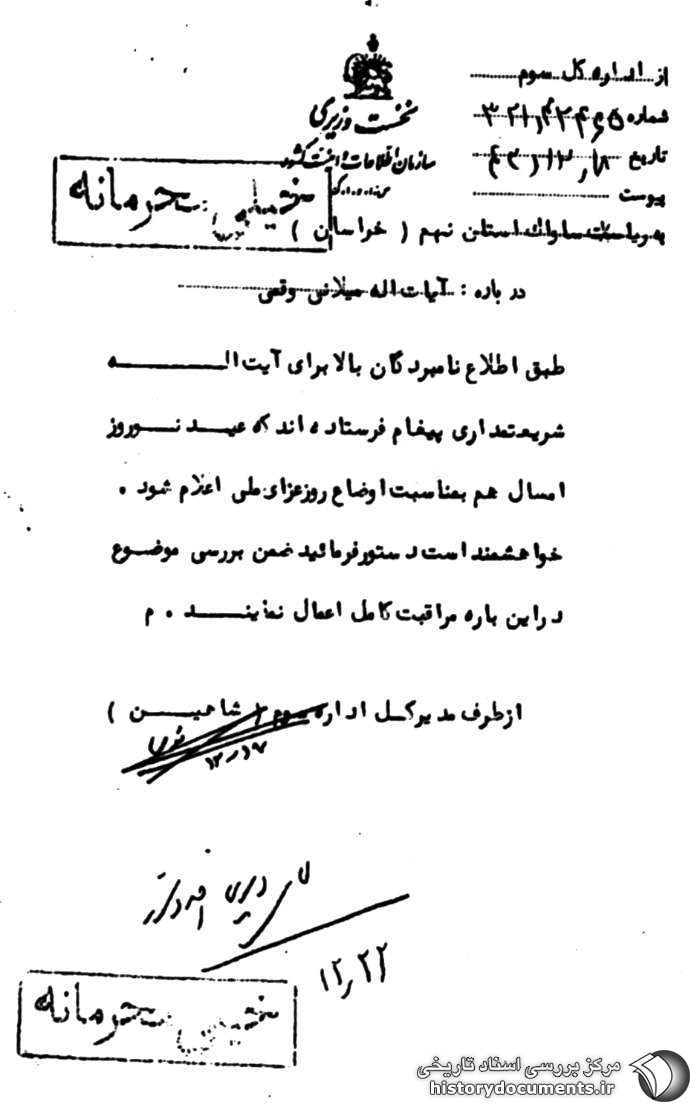 از اداره کل سوم
شماره
تاریخ ۴۲,۱۲,۱۸
پیوست
نخست وزیری
سازمان اطلاعات و امنیت کشور
خیلی محرمانه
به ریاست ساواک استان نهم ( خراسان )
در باره : آیات اله میلانی وقمی
طبق اطلاع نامبردگان بالا برای آیت الـــــــه
شریعتمداری پیغام فرستاده اند که عیــد نــوروز
امسال هم بمناسبت اوضاع روزعزای ملی اعلام شود .
خواهشمند است دستورفرمائید ضمن بررسی موضـوع
دراین باره مراقبت کامل اعمال نماینـــد . م
ازطرف مدیرکـل اداره سوم ( شاهیــن )
۱۲٫۱۷
۱۲٫۲۲
خیلی محرمانه
مرکز بررسی اسناد تاریخی
historydocuments.ir